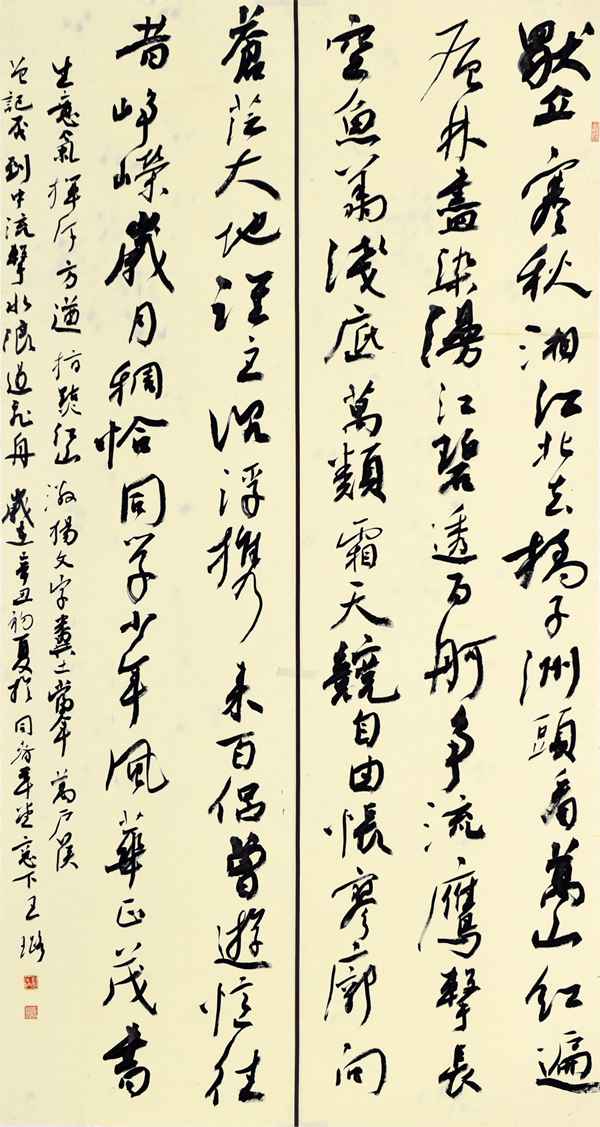 獨立寒秋湘江北去橘子洲頭看萬山紅遍
層林盡染漫江碧透百舸爭流鷹擊長
空魚翔淺底萬類霜天競自由悵寥廓問
蒼茫大地誰主沉浮攜來百侶曾遊憶往
昔崢嶸歲月稠恰同学少年風華正茂書
生意氣揮斥方遒指點江山激揚文字糞土當年萬戶侯
曾記否到中流擊水浪遏飛舟 歲在辛丑初夏於同 下王璐